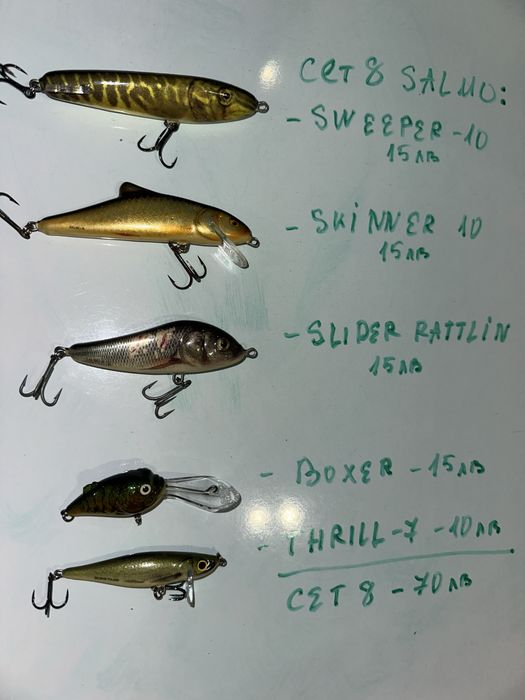 СЕТ 8 SALMO:
- SWEEPER - 10
15 лв
- SKINNER 10
15 лв
- SLIDER RATTLIN
15 лв
- BOXER - 15 лв
- THRILL - 7 - 10 лв
СЕТ 8 - 70 лв